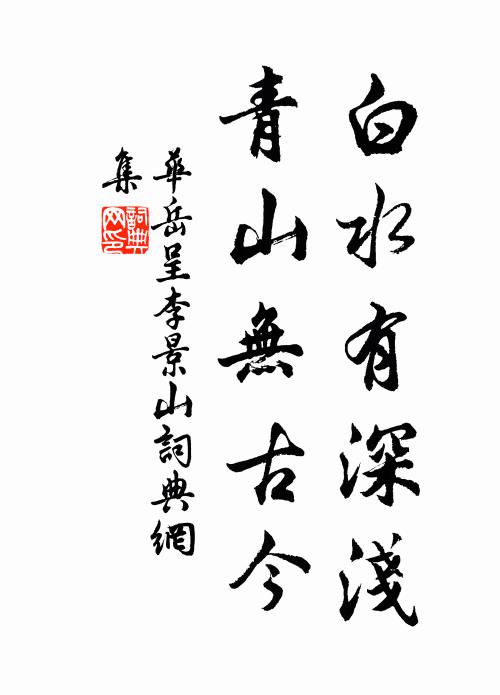 白水有深淺
青山無古今
華岳呈李景山詞典網
集
詞典網印